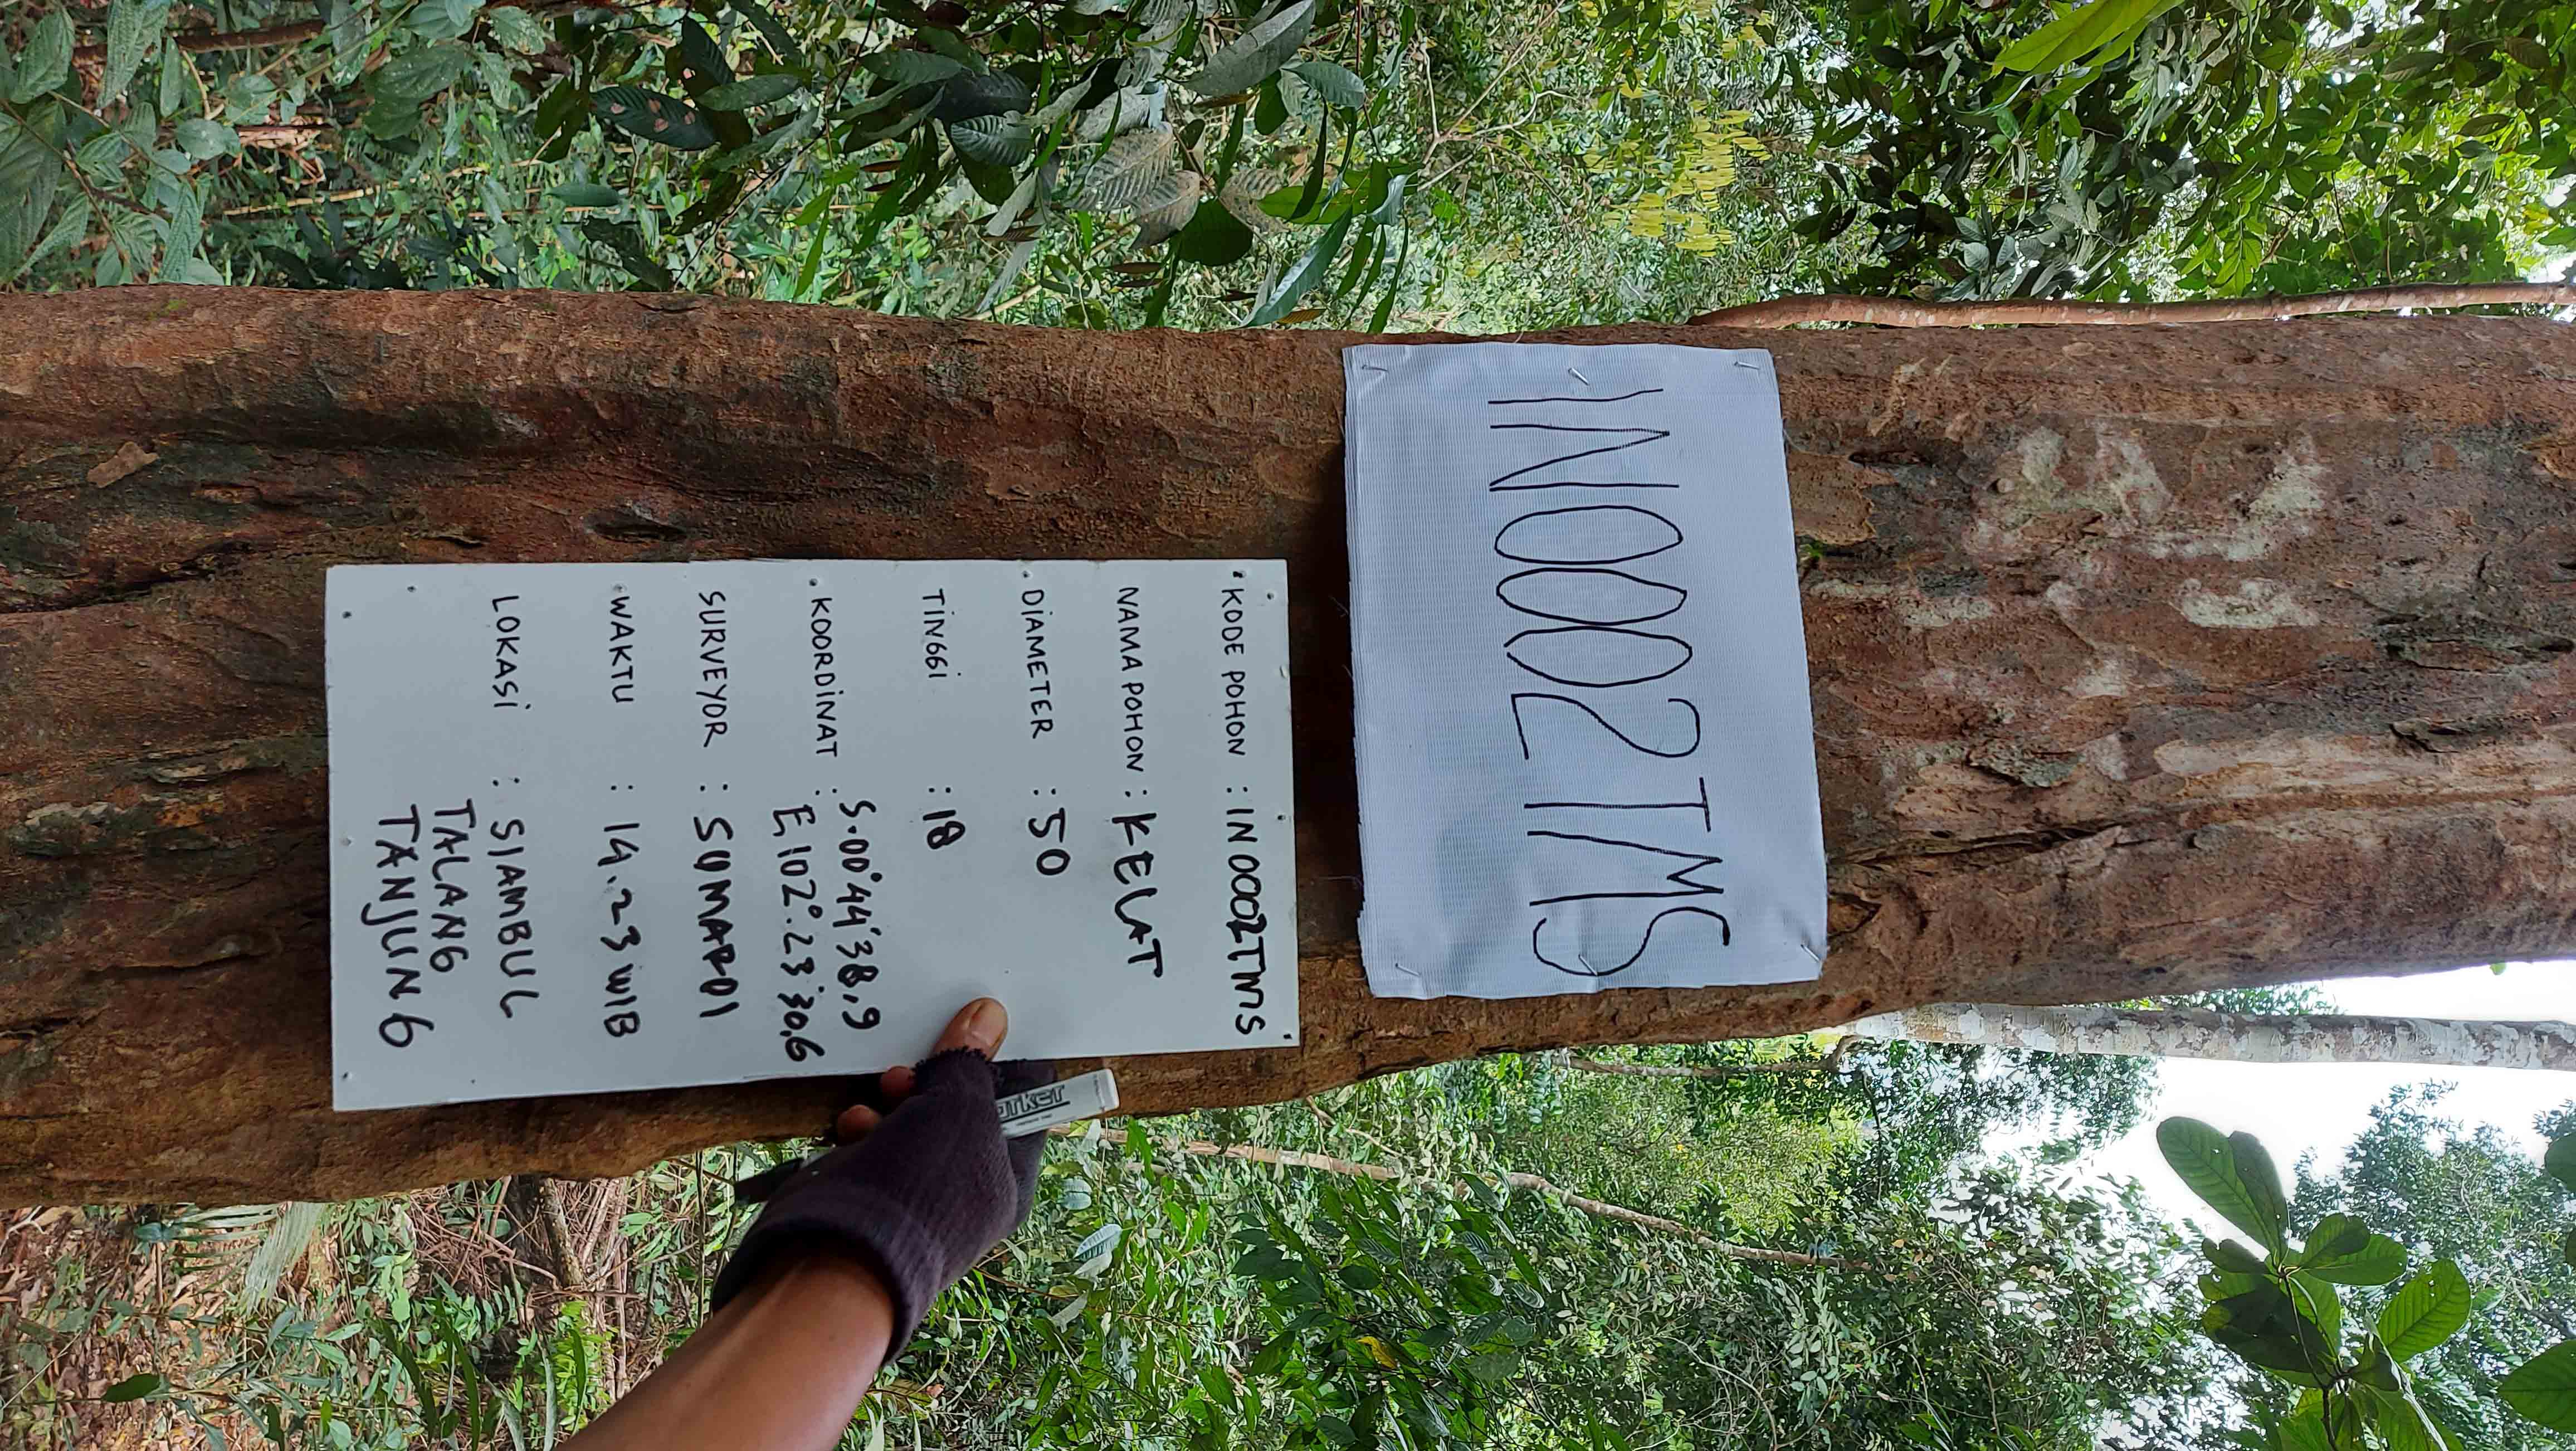 IN0002TMS
KODE POHON : IN0002TMS
NAMA POHON : KELAT
DIAMETER : 50
TINGGI : 18
KOORDINAT : S.00°44'38,9
E 102°.23'30,6
SURVEYOR : SUMARDI
WAKTU : 14.23 WIB
LOKASI : SIAMBUL
TALANG
TANJUNG